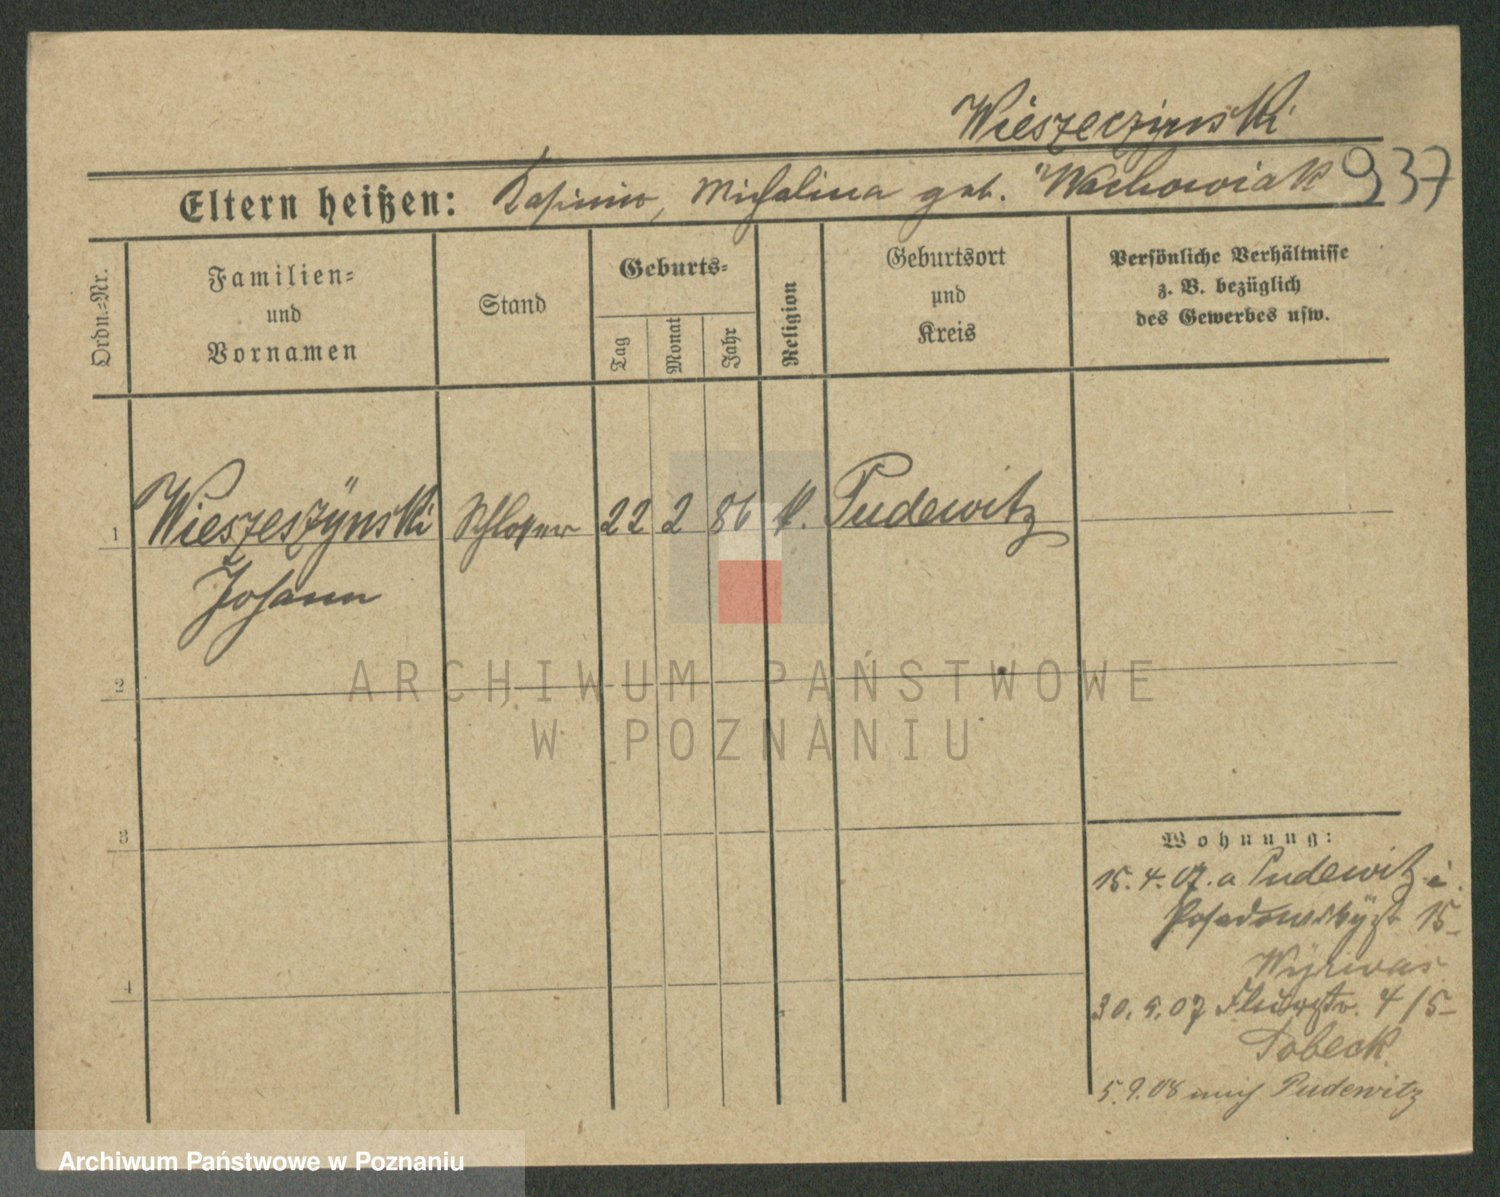 Wieszeczynski
937
Eltern heißen: Kasimir, Michalina geb. Wachowiak
Ordn.-Nr.
Familien-
und
Vornamen
Stand
Geburts-
Tag
Monat
Jahr
Religion
Geburtsort
und
Kreis
Persönliche Verhältnisse
z. B. bezüglich
des Gewerbes usw.
1 Wieszeszÿnski Schlosser 22 2 86 k. Pudewitz
Johann
2
3
4
Wohnung:
15. 4. 07. a Pudewitz i.
Posadowskÿst 15
Wyrwas
30. 9. 07 Flurstr. 4 / 5
Tobeck
5. 9. 08 nach Pudewitz
ARCHIWUM PAŃSTWOWE
W POZNANIU
Archiwum Państwowe w Poznaniu